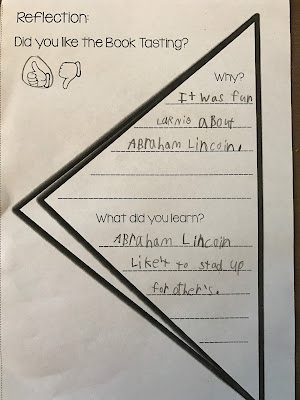 Reflection:
Did you like the Book Tasting?
Why?
It was fun
larnie about
Abraham Lincoln.
What did you learn?
Abraham Lincoln
Liket to stad up
for other's.